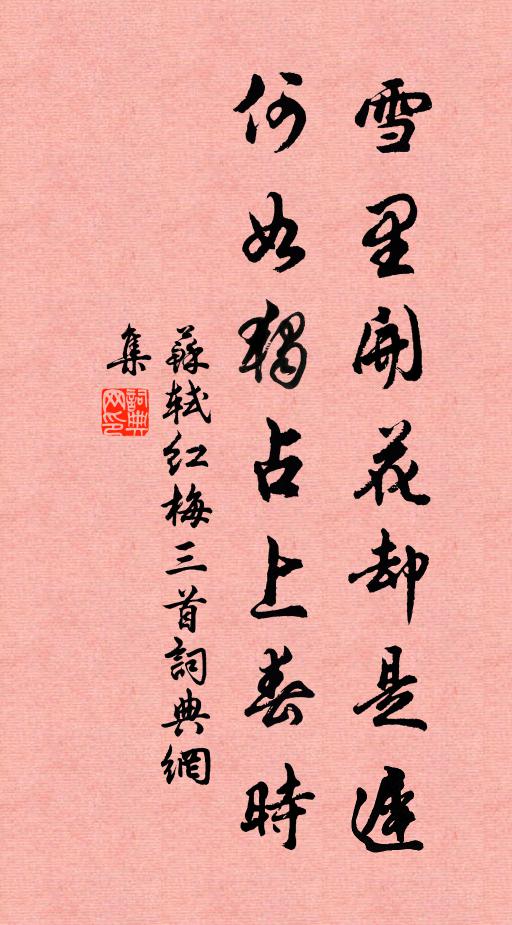 雪里開花却是遲
何如獨占上春時
蘇軾紅梅三首詞典網
集
詞典網印